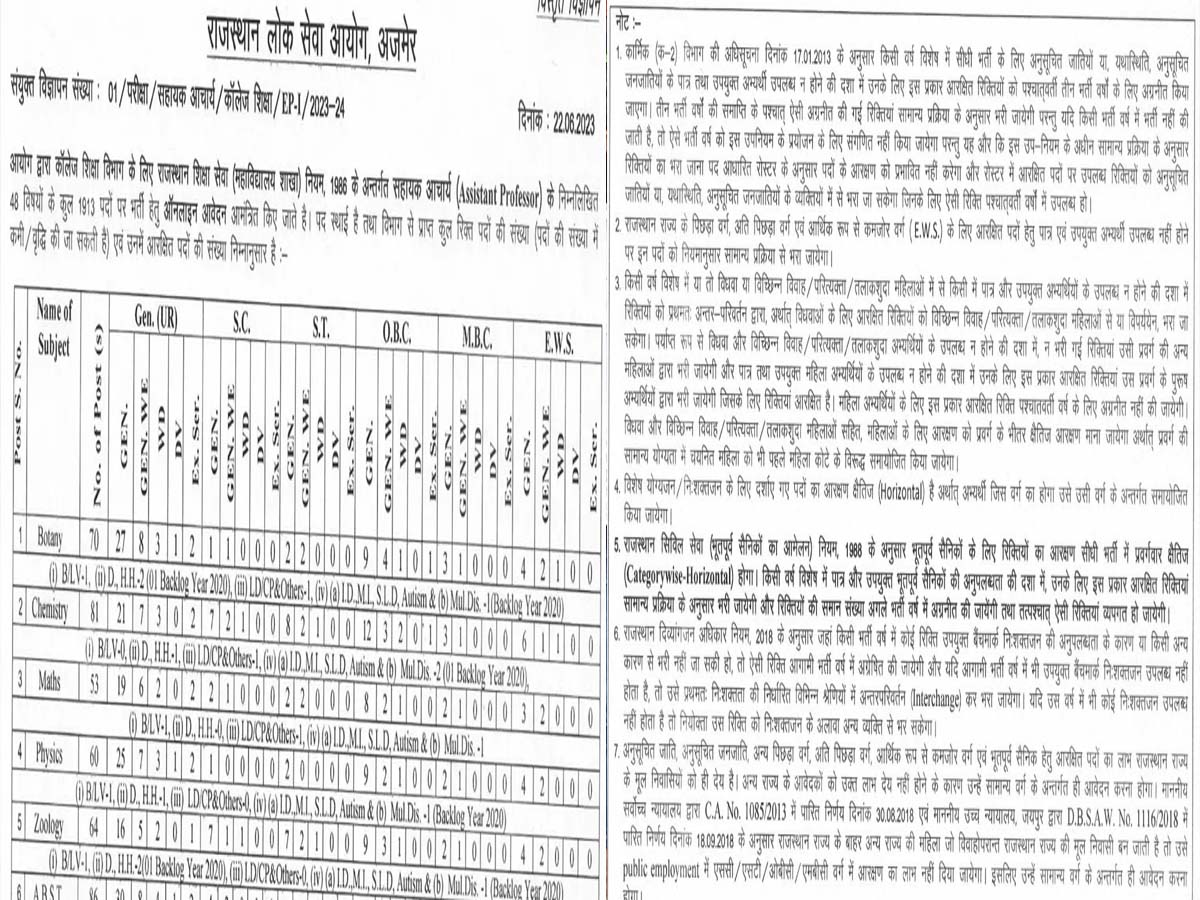 विस्तृत विज्ञापन
राजस्थान लोक सेवा आयोग, अजमेर
संयुक्त विज्ञापन संख्या : 01/परीक्षा/सहायक आचार्य/कॉलेज शिक्षा/EP-I/2023-24
दिनांक : 22.06.2023
आयोग द्वारा कॉलेज शिक्षा विभाग के लिए राजस्थान शिक्षा सेवा (महाविद्यालय शाखा) नियम, 1986 के अन्तर्गत सहायक आचार्य (Assistant Professor) के निम्नलिखित
48 विषयों के कुल 1913 पदों पर भर्ती हेतु ऑनलाइन आवेदन आमंत्रित किए जाते है। पद स्थाई है तथा विभाग से प्राप्त कुल रिक्त पदों की संख्या (पदों की संख्या में
कमी/वृद्धि की जा सकती है) एवं उनमें आरक्षित पदों की संख्या निम्नानुसार है :–
Post S. No. Name of Subject No. of Post (s) Gen. (UR) S.C. S.T. O.B.C. M.B.C. E.W.S.
GEN. GEN. WE WD DV Ex. Ser. GEN. GEN. WE WD DV Ex. Ser. GEN. WE WD DV Ex. Ser. GEN. GEN. WE WD DV Ex. Ser. GEN. GEN. WE WD DV Ex. Ser. GEN. GEN. WE WD DV Ex. Ser.
1 Botany 70 27 8 3 1 2 1 1 0 0 0 2 2 0 0 0 9 4 1 0 1 3 1 0 0 0 4 2 1 0 0
(i) B/LV-1, (ii) D., H.H.-2 (01 Backlog Year 2020), (iii) LD/CP&Others-1, (iv) (a) I.D.,M.I., S.L.D, Autism & (b) Mul.Dis. -1(Backlog Year 2020)
2 Chemistry 81 21 7 3 0 2 7 2 1 0 0 8 2 1 0 0 12 3 2 0 1 3 1 0 0 0 6 1 1 0 0
(i) B/LV-0, (ii) D., H.H.-1, (iii) LD/CP&Others-1, (iv) (a) I.D.,M.I., S.L.D, Autism & (b) Mul.Dis. -2 (01 Backlog Year 2020),
3 Maths 53 19 6 2 0 2 2 1 0 0 0 2 2 0 0 0 8 2 1 0 0 2 1 0 0 0 3 2 0 0 0
(i) B/LV-1, (ii) D., H.H.-0, (iii) LD/CP&Others-1, (iv) (a) I.D.,M.I., S.L.D, Autism & (b) Mul.Dis. -1
4 Physics 60 25 7 3 1 2 1 0 0 0 0 2 0 0 0 0 9 2 1 0 0 2 1 0 0 0 4 2 0 0 0
(i) B/LV-1, (ii) D., H.H.-1, (iii) LD/CP&Others-0, (iv) (a) I.D.,M.I., S.L.D, Autism & (b) Mul.Dis. -1 (Backlog Year 2020)
5 Zoology 64 16 5 2 0 1 7 1 1 0 0 7 2 1 0 0 9 3 1 0 0 2 1 0 0 0 4 2 0 0 0
(i) B/LV-1, (ii) D., H.H.-2(01 Backlog Year 2020), (iii) LD/CP&Others-0, (iv) (a) I.D.,M.I., S.L.D, Autism & (b) Mul.Dis. -1 (Backlog Year 2020)
6 A.B.S.T. 86
नोट :–
1. कार्मिक (क–2) विभाग की अधिसूचना दिनांक 17.01.2013 के अनुसार किसी वर्ष विशेष में सीधी भर्ती के लिए अनुसूचित जातियों या, यथास्थिति, अनुसूचित
जनजातियों के पात्र तथा उपयुक्त अभ्यर्थी उपलब्ध न होने की दशा में उनके लिए इस प्रकार आरक्षित रिक्तियों को पश्चातवर्ती तीन भर्ती वर्षों के लिए अग्रनीत किया
जाएगा। तीन भर्ती वर्षों की समाप्ति के पश्चात् ऐसी अग्रनीत की गई रिक्तियां सामान्य प्रक्रिया के अनुसार भरी जायेगी परन्तु यदि किसी भर्ती वर्ष में भर्ती नहीं की
जाती है, तो ऐसे भर्ती वर्ष को इस उपनियम के प्रयोजन के लिए संगणित नहीं किया जायेगा परन्तु यह और कि इस उप–नियम के अधीन सामान्य प्रक्रिया के अनुसार
रिक्तियों का भरा जाना पद आधारित रोस्टर के अनुसार पदों के आरक्षण को प्रभावित नहीं करेगा और रोस्टर में आरक्षित पदों पर उपलब्ध रिक्तियों को अनुसूचित
जातियों या, यथास्थिति, अनुसूचित जनजातियों के व्यक्तियों में से भरा जा सकेगा जिनके लिए ऐसी रिक्ति पश्चात्वर्ती वर्षों में उपलब्ध हो।
2. राजस्थान राज्य के पिछड़ा वर्ग, अति पिछड़ा वर्ग एवं आर्थिक रूप से कमजोर वर्ग (E.W.S.) के लिए आरक्षित पदों हेतु पात्र एवं उपयुक्त अभ्यर्थी उपलब्ध नहीं होने
पर इन पदों को नियमानुसार सामान्य प्रक्रिया से भरा जायेगा।
3. किसी वर्ष विशेष में या तो विधवा या विच्छिन्न विवाह/परित्यक्ता/तलाकशुदा महिलाओं में से किसी में पात्र और उपयुक्त अभ्यर्थियों के उपलब्ध न होने की दशा में
रिक्तियों को प्रथमतः अन्तर–परिवर्तन द्वारा, अर्थात् विधवाओं के लिए आरक्षित रिक्तियों को विच्छिन्न विवाह/परित्यक्ता/तलाकशुदा महिलाओं से या विपर्ययेन, भरा जा
सकेगा। पर्याप्त रूप से विधवा और विच्छिन्न विवाह/परित्यक्ता/तलाकशुदा अभ्यर्थियों के उपलब्ध न होने की दशा में, न भरी गई रिक्तियां उसी प्रवर्ग की अन्य
महिलाओं द्वारा भरी जायेगी और पात्र तथा उपयुक्त महिला अभ्यर्थियों के उपलब्ध न होने की दशा में उनके लिए इस प्रकार आरक्षित रिक्तियां उस प्रवर्ग के पुरूष
अभ्यर्थियों द्वारा भरी जायेगी जिसके लिए रिक्तियां आरक्षित है। महिला अभ्यर्थियों के लिए इस प्रकार आरक्षित रिक्ति पश्चातवर्ती वर्ष के लिए अग्रनीत नहीं की जायेगी।
विधवा और विच्छिन्न विवाह/परित्यक्ता/तलाकशुदा महिलाओं सहित, महिलाओं के लिए आरक्षण को प्रवर्ग के भीतर क्षैतिज आरक्षण माना जायेगा अर्थात् प्रवर्ग की
सामान्य योग्यता में चयनित महिला को भी पहले महिला कोटे के विरूद्ध समायोजित किया जायेगा।
4. विशेष योग्यजन/निःशक्तजन के लिए दर्शाए गए पदों का आरक्षण क्षैतिज (Horizontal) है अर्थात् अभ्यर्थी जिस वर्ग का होगा उसे उसी वर्ग के अन्तर्गत समायोजित
किया जायेगा।
5. राजस्थान सिविल सेवा (भूतपूर्व सैनिकों का आमेलन) नियम, 1988 के अनुसार भूतपूर्व सैनिकों के लिए रिक्तियों का आरक्षण सीधी भर्ती में प्रवर्गवार क्षैतिज
(Categorywise-Horizontal) होगा। किसी वर्ष विशेष में पात्र और उपयुक्त भूतपूर्व सैनिकों की अनुपलब्धता की दशा में, उनके लिए इस प्रकार आरक्षित रिक्तियां
सामान्य प्रक्रिया के अनुसार भरी जायेगी और रिक्तियों की समान संख्या अगले भर्ती वर्ष में अग्रनीत की जायेंगी तथा तत्पश्चात् ऐसी रिक्तियां व्यपगत हो जायेगी।
6. राजस्थान दिव्यांगजन अधिकार नियम, 2018 के अनुसार जहां किसी भर्ती वर्ष में कोई रिक्ति उपयुक्त बैंचमार्क निःशक्तजन की अनुपलब्धता के कारण या किसी अन्य
कारण से भरी नहीं जा सकी हो, तो ऐसी रिक्ति आगामी भर्ती वर्ष में अग्रेषित की जायेगी और यदि आगामी भर्ती वर्ष में भी उपयुक्त बैंचमार्क निःशक्तजन उपलब्ध नहीं
होता है, तो उसे प्रथमतः निःशक्तता की निर्धारित विभिन्न श्रेणियों में अन्तरपरिवर्तन (Interchange) कर भरा जायेगा। यदि उस वर्ष में भी कोई निःशक्तजन उपलब्ध
नहीं होता है तो नियोक्ता उस रिक्ति को निःशक्तजन के अलावा अन्य व्यक्ति से भर सकेगा।
7. अनुसूचित जाति, अनुसूचित जनजाति, अन्य पिछड़ा वर्ग, अति पिछड़ा वर्ग, आर्थिक रूप से कमजोर वर्ग एवं भूतपूर्व सैनिक हेतु आरक्षित पदों का लाभ राजस्थान राज्य
के मूल निवासियों को ही देय है। अन्य राज्य के आवेदकों को उक्त लाभ देय नहीं होने के कारण उन्हें सामान्य वर्ग के अन्तर्गत ही आवेदन करना होगा। माननीय
सर्वोच्च न्यायालय द्वारा C.A. No. 1085/2013 में पारित निर्णय दिनांक 30.08.2018 एवं माननीय उच्च न्यायालय, जयपुर द्वारा D.B.S.A.W. No. 1116/2018 में
पारित निर्णय दिनांक 18.09.2018 के अनुसार राजस्थान राज्य के बाहर अन्य राज्य की महिला जो विवाहोपरान्त राजस्थान राज्य की मूल निवासी बन जाती है तो उसे
public employment में एससी/एसटी/ओबीसी/एमबीसी वर्ग में आरक्षण का लाभ नहीं दिया जायेगा। इसलिए उन्हें सामान्य वर्ग के अन्तर्गत ही आवेदन करना
होगा।